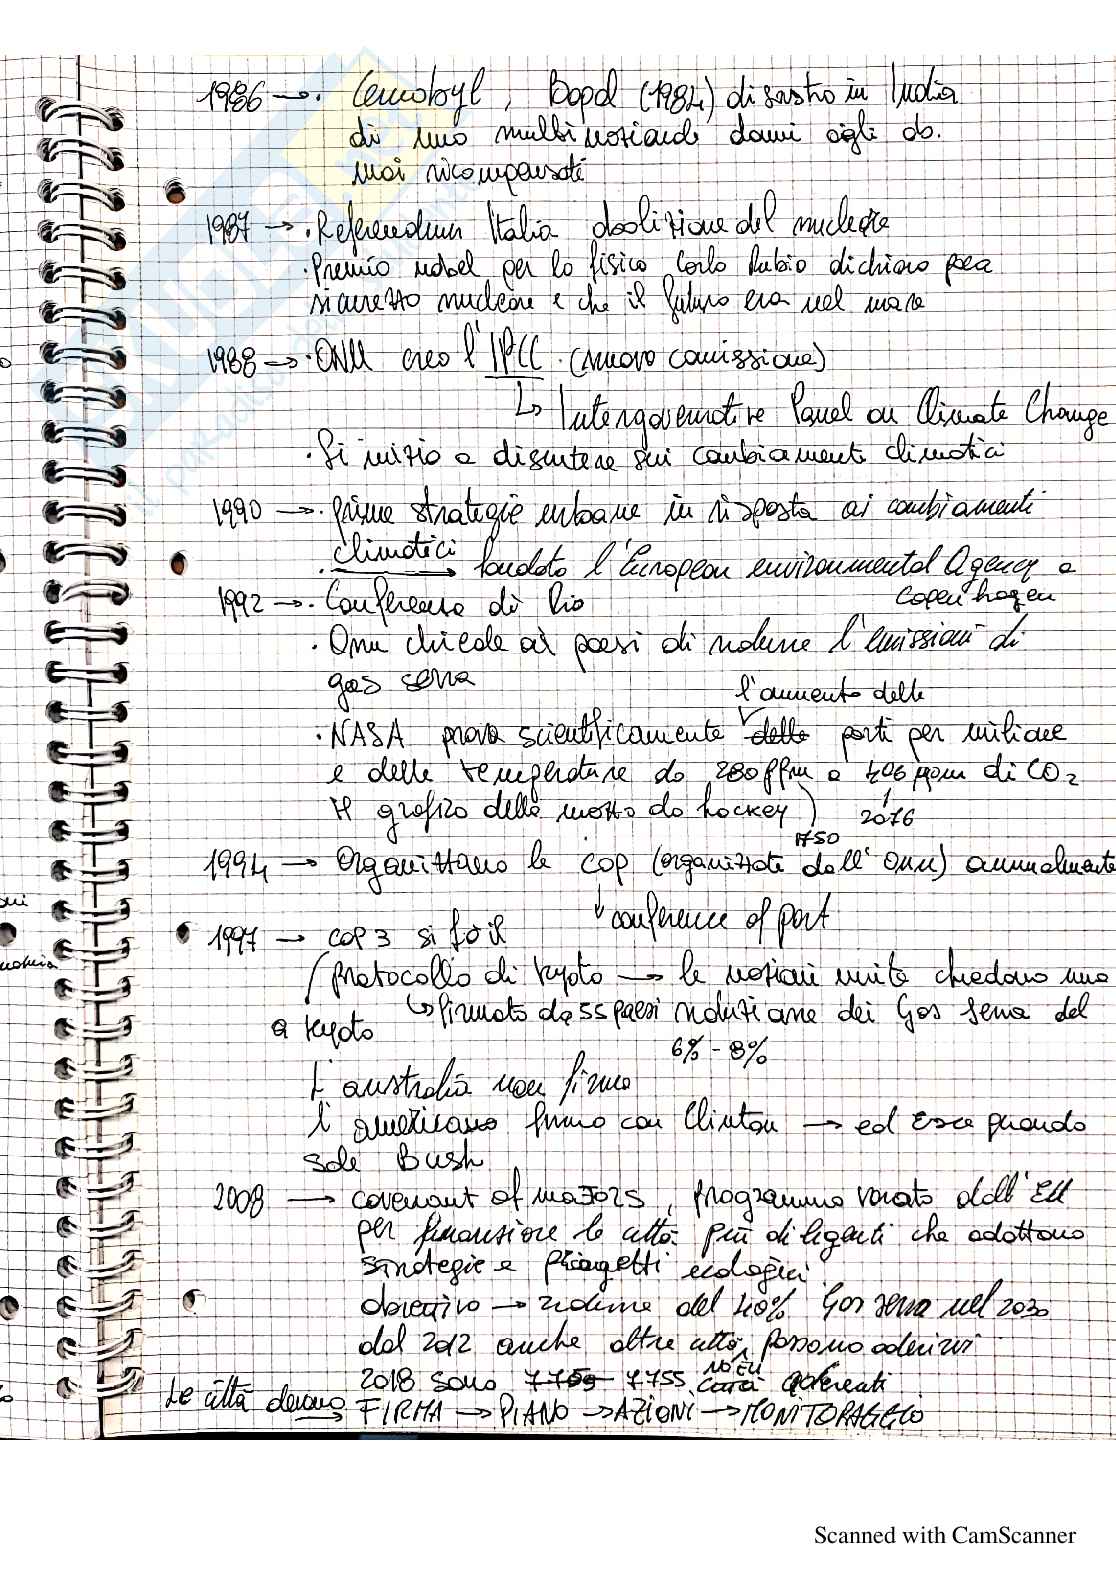 1986 → . Cernobyl, Bopal (1984) disastro in India
di una multinazionale danni agli ab.
mai ricompensati
1987 → . Referendum Italia abolizione del nucleare
. Premio nobel per la fisica Carlo Rubia dichiara poca
sicurezza nucleare e che il futuro era nel
1988 → . ONU crea l'IPCC . (nuova comissione)
↳ Intergovernative Panel on Climate Change
. Si inizia a discutere sui cambiamenti climatici
1990 → . prime strategie urbane in risposta ai cambiamenti
climatici
. fondata l'European environmental Agency a
Copenhagen
1992 → . Conferenza di Rio
. Onu chiede ai paesi di ridurre l'emissioni di
gas serra
l'aumento delle
. NASA prova scientificamente delle parti per milione
e delle temperature da 280 ppm a 406 ppm di CO2
grafico della mazza da hockey) 2016
1750
1994 → Organizzano le COP (organizzate dall'Onu) annualmente
↓ conference of part
1997 → COP 3 si fa il
protocollo di kyoto → le nazioni unite chiedono una
↳ firmato da 55 paesi riduzione dei Gas Serra del
a kyoto
6% - 8%
L'australia non firma
l'americano firma con Clinton → ed esce quando
sale Bush
2008 → covenant of maJors, programma varato dall'EU
per finanziare le città più diligenti che adottano
strategie e progetti ecologici
obiettivo → ridurre del 40% Gas serra nel 2030
dal 2012 anche altre città possono aderirvi
NO EU
2018 sono 7755 città aderenti
Le città devono FIRMA → PIANO → AZIONI → MONITORAGGIO
Scanned with CamScanner